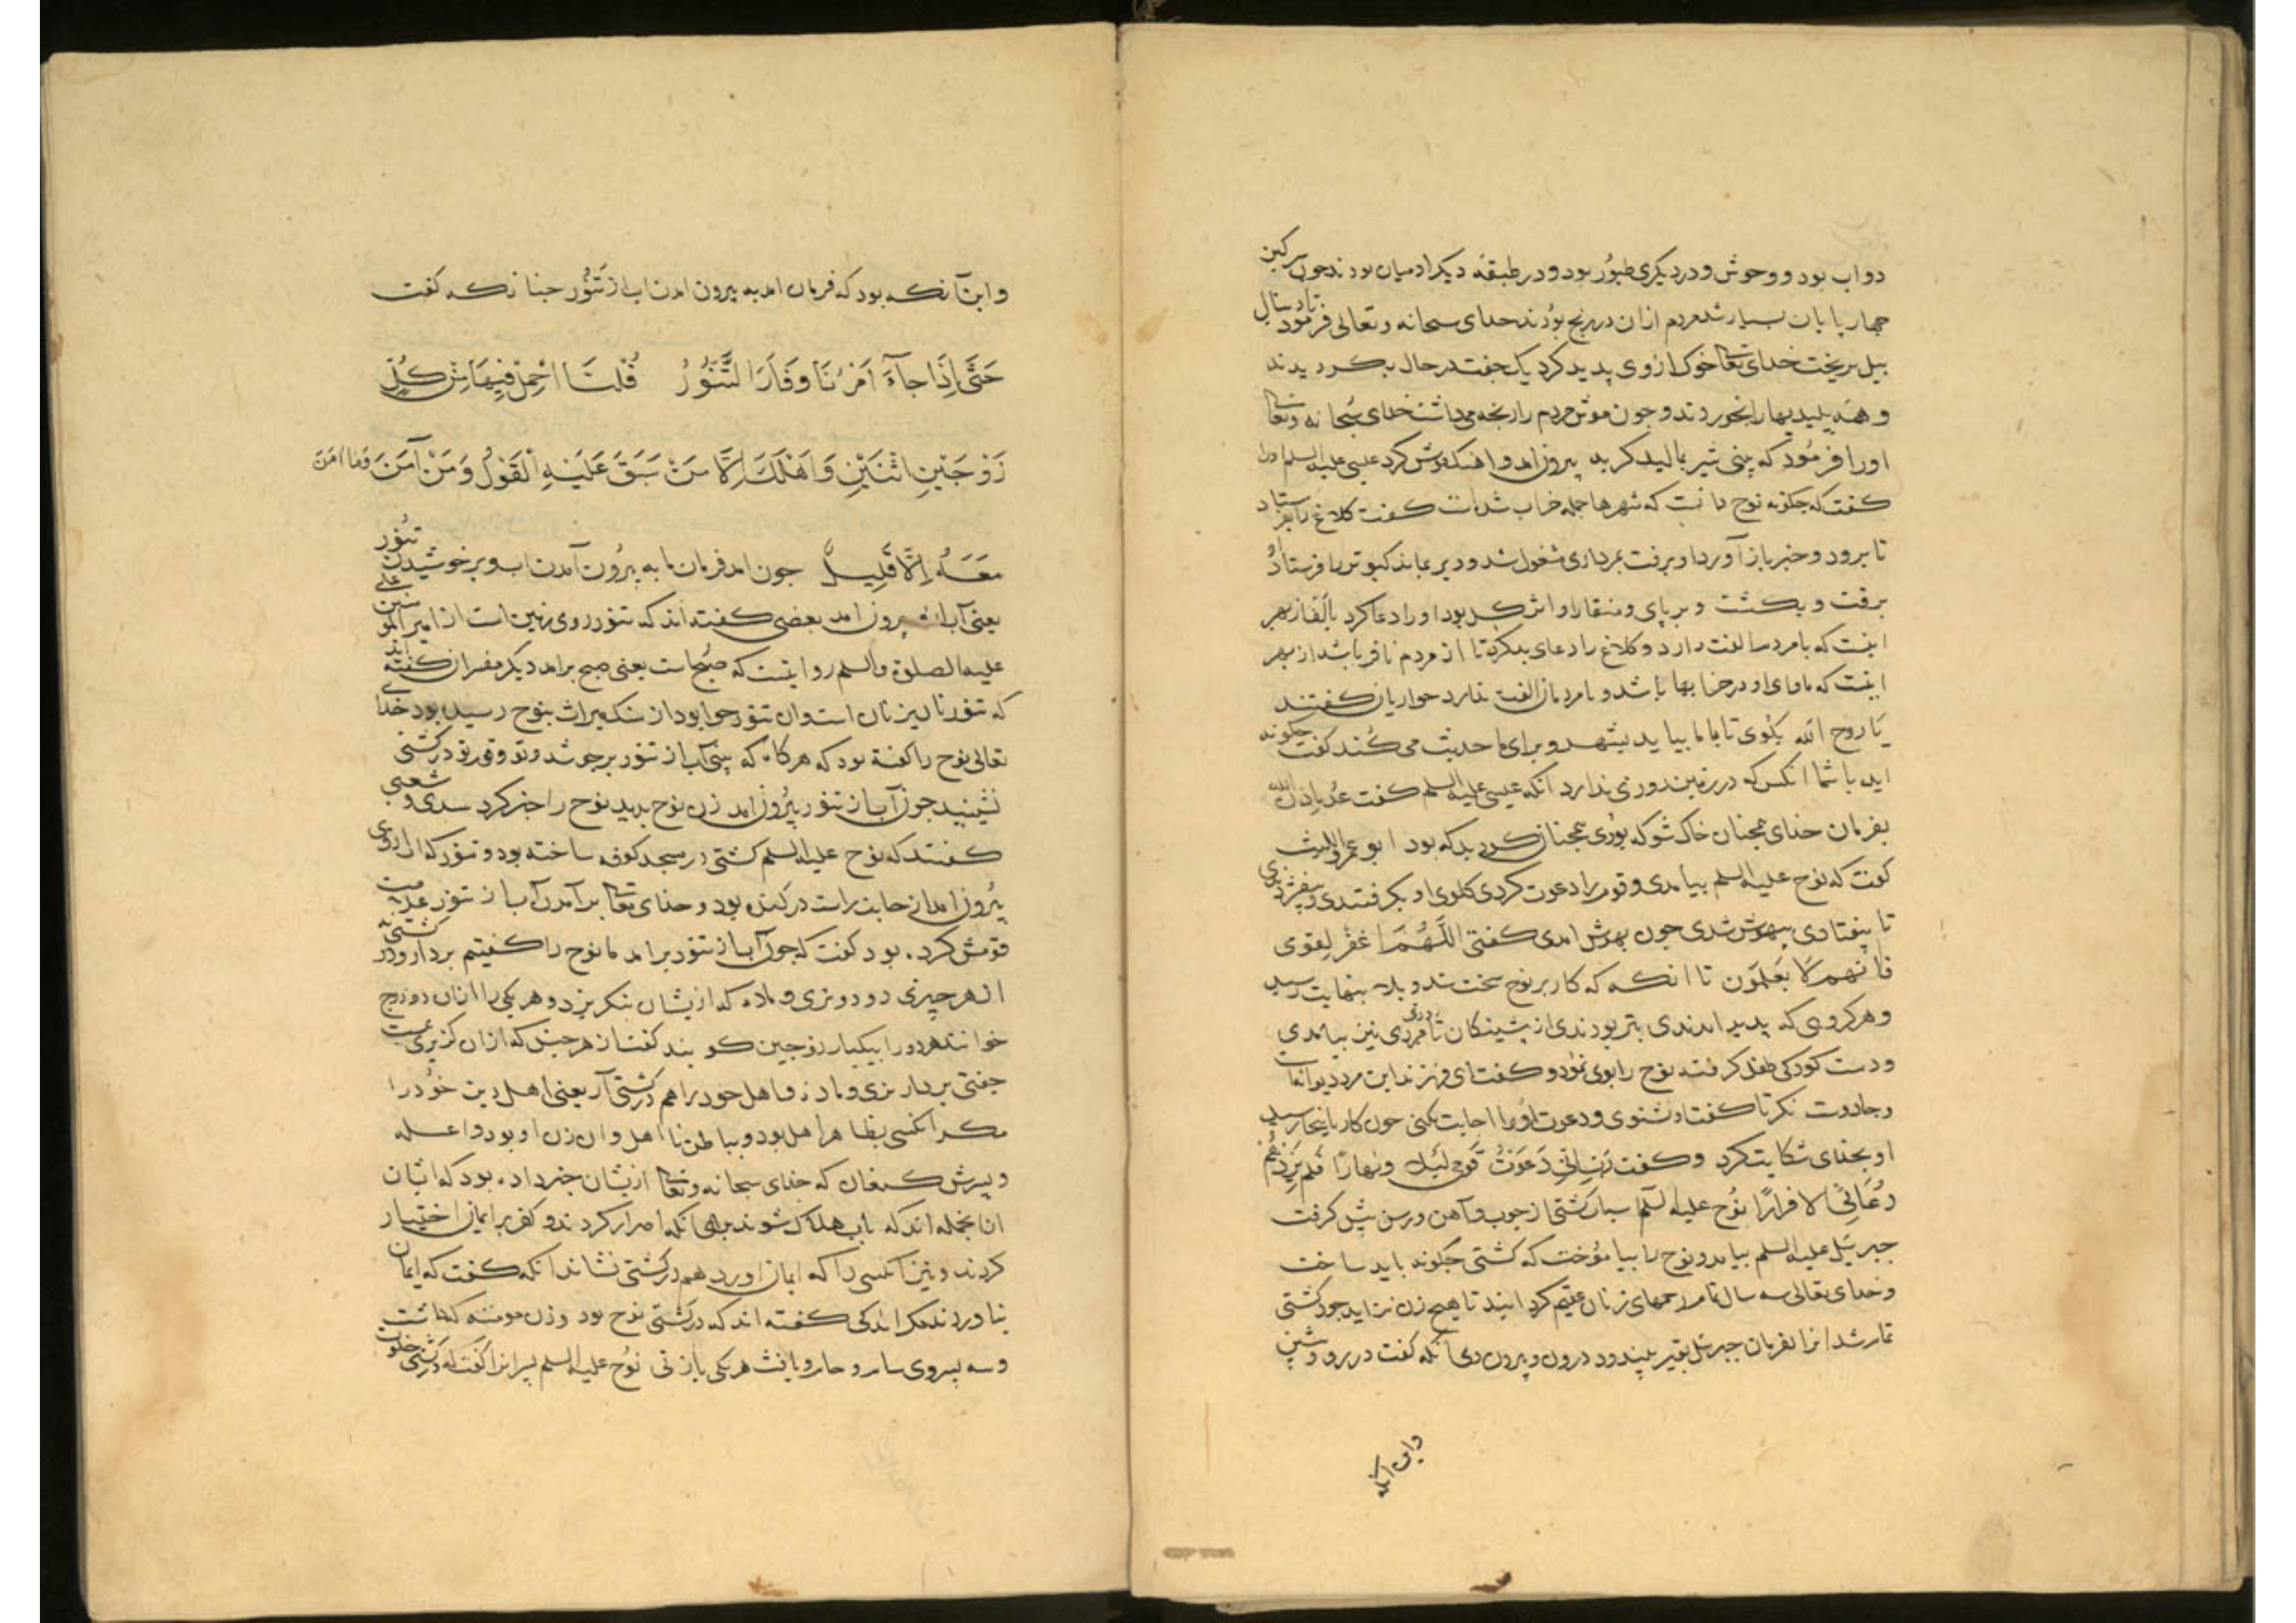 دواب بود و وحوش و در دیکری طیور بود و در طبقه دیکر ادمیان بودند چون سرکین
چهار پایان بسیار شد مردم ازان در رنج بودند خدای سبحانه و تعالی فرمود تا دنبال
بیل بریخت خدای تعا خوک از وی پدید کرد یک جفت در حال بکردیدند
و همه پلیدیها را بخوردند و جون موش مردم را رنجه می داشت خدای سبحانه و تعا
اورا فرمود که بینی شیر بمالید کربه بیرون امد و اهنک موش کرد عیسی علیه السلم را
کفت که جکونه نوح دانست که شهرها جمله خراب شدات کفت کلاغ را بفرستاد
تا برود و خبر باز آورد او برفت بمرداری مشغول شد و دیر بماند کبوتر را فرستاد
برفت و بکشت و بر پای و منقار او اثر کل بود او را دعا کرد بالف از بهر
اینست که بامردم الفت دارد و کلاغ را دعای بد کرد تا از مردم نافر باشد از بهر
اینست که ماوای او در خرابها باشد و بامردمان الفت ندارد حواریان کفتند
یا روح الله بکوی تا با ما بیاید بشهر و برای ما حدیث می کند کفت جکونه
اید با شما انکس که در زمین روزی ندارد انکه عیسی علیه السلم کفت عد باذن الله
بفرمان خدای همجنان خاک شو که بودی همجنان کردید که بود ابو عمرو اللیث
کفت که نوح علیه السلم بیامدی و قوم را دعوت کردی کلوی او بکرفتندی و بیفشردندی
تا بیفتادی بیهوش شدی جون بهوش امدی کفتی اللهم اغفر لقومی
فانهم لا یعلمون تا انکه که کار بر نوح سخت شد و بلا بنهایت رسید
و هر کروهی که پدید امدندی بتر بودندی از پیشینکان تا مردی نیز بیامدی
و دست کودکی طفل کرفته نوح را بوی نمود و کفت ای فرزند این مرد دیوانهات
و جادوست نکر تا کفت او نشنوی و دعوت او را اجابت نکنی جون کار بانجا رسید
او بخدای شکایت کرد و کفت رب انی دعوت قومی لیلا ونهارا فلم یزدهم
دعائی الا فرارا نوح علیه السلم ساز کشتی از جوب و آهن و رسن پیش کرفت
جبرئیل علیه السلم بیامد و نوح را بیاموخت که کشتی جکونه باید ساخت
و خدای تعالی سه سال تمام رحمهای زنان عقیم کردانید تا هیج زن نزاید جون کشتی
تمام شد انرا بفرمان جبرئیل بقیر بیندود درون و بیرون وی انکه کفت در رو و شین
واین انکه
و این آنکه بود که فرمان امد به بیرون امدن اب از تنور جنانکه کفت
حَتَّى اِذَا جَآءَ اَمْرُنَا وَفَارَ التَّنُّورُ قُلْنَا احْمِلْ فِيهَا مِنْ كُلٍّ
زَوْجَيْنِ اثْنَيْنِ وَاَهْلَكَ اِلَّا مَنْ سَبَقَ عَلَيْهِ الْقَوْلُ وَمَنْ آمَنَ وَمَا آمَنَ
مَعَهُ اِلَّا قَلِيلٌ جون امد فرمان ما به بیرون آمدن اب و برخوشیدن تنور
یعنی آب ازو بیرون امد بعضی کفته اند که تنور روی زمین است از امیر المومنین علی
علیه الصلوة والسلم روایتست که صبح است یعنی صبح برامد دیکر مفسران کفته اند
که تنور نان پزنان است وان تنور حوا بود از سنک میراث بنوح رسید بود خدای
تعالی نوح را کفته بود که هر کاه که بینی آب از تنور برجوشد و تو و قوم تو در کشتی
نشینید جون آب از تنور بیرون امد زن نوح بدید نوح را خبر کرد سدی و شعبی
کفتند که نوح علیه السلم کشتی در مسجد کوفه ساخته بود و تنور که اب از وی
بیرون امد از جانب راست در کنده بود و خدای تعا برآمدن آب از تنور علامت
قومش کرده بود کفت که جون آب از تنور برامد ما نوح را کفتیم بردار و در کشتی نه
از هر جیزی دو دو نری و ماده که ازیشان نکریزد و هر یکی را ازان دو زوج
خوانند هر دو را بیکبار زوجین کویند کفت از هر جنس که ازان کزیری نیست
جفتی بردار نری و ماده و اهل خود را هم در کشتی آر یعنی اهل دین خود را
مکر انکسی بظاهر اهل بود و بباطن نااهل وان زن او بود واعله
و پسرش کنعان که خدای سبحانه و تعا ازیشان خبر داده بود که ایشان
ازان جمله اند که باب هلاک شوند برای انکه اصرار کردند و کفر بر ایمان اختیار
کردند و نیز انکسی را که ایمان اورد هم در کشتی نشاند انکه کفت که ایمان
نیاوردند مکر اندکی کفته اند که در کشتی نوح بود و زن مومنه که داشت
و سه پسر وی سام و حام و یافث هر یکی با زنی نوح علیه السلم پسرانرا کفت که در کشتی خلوت